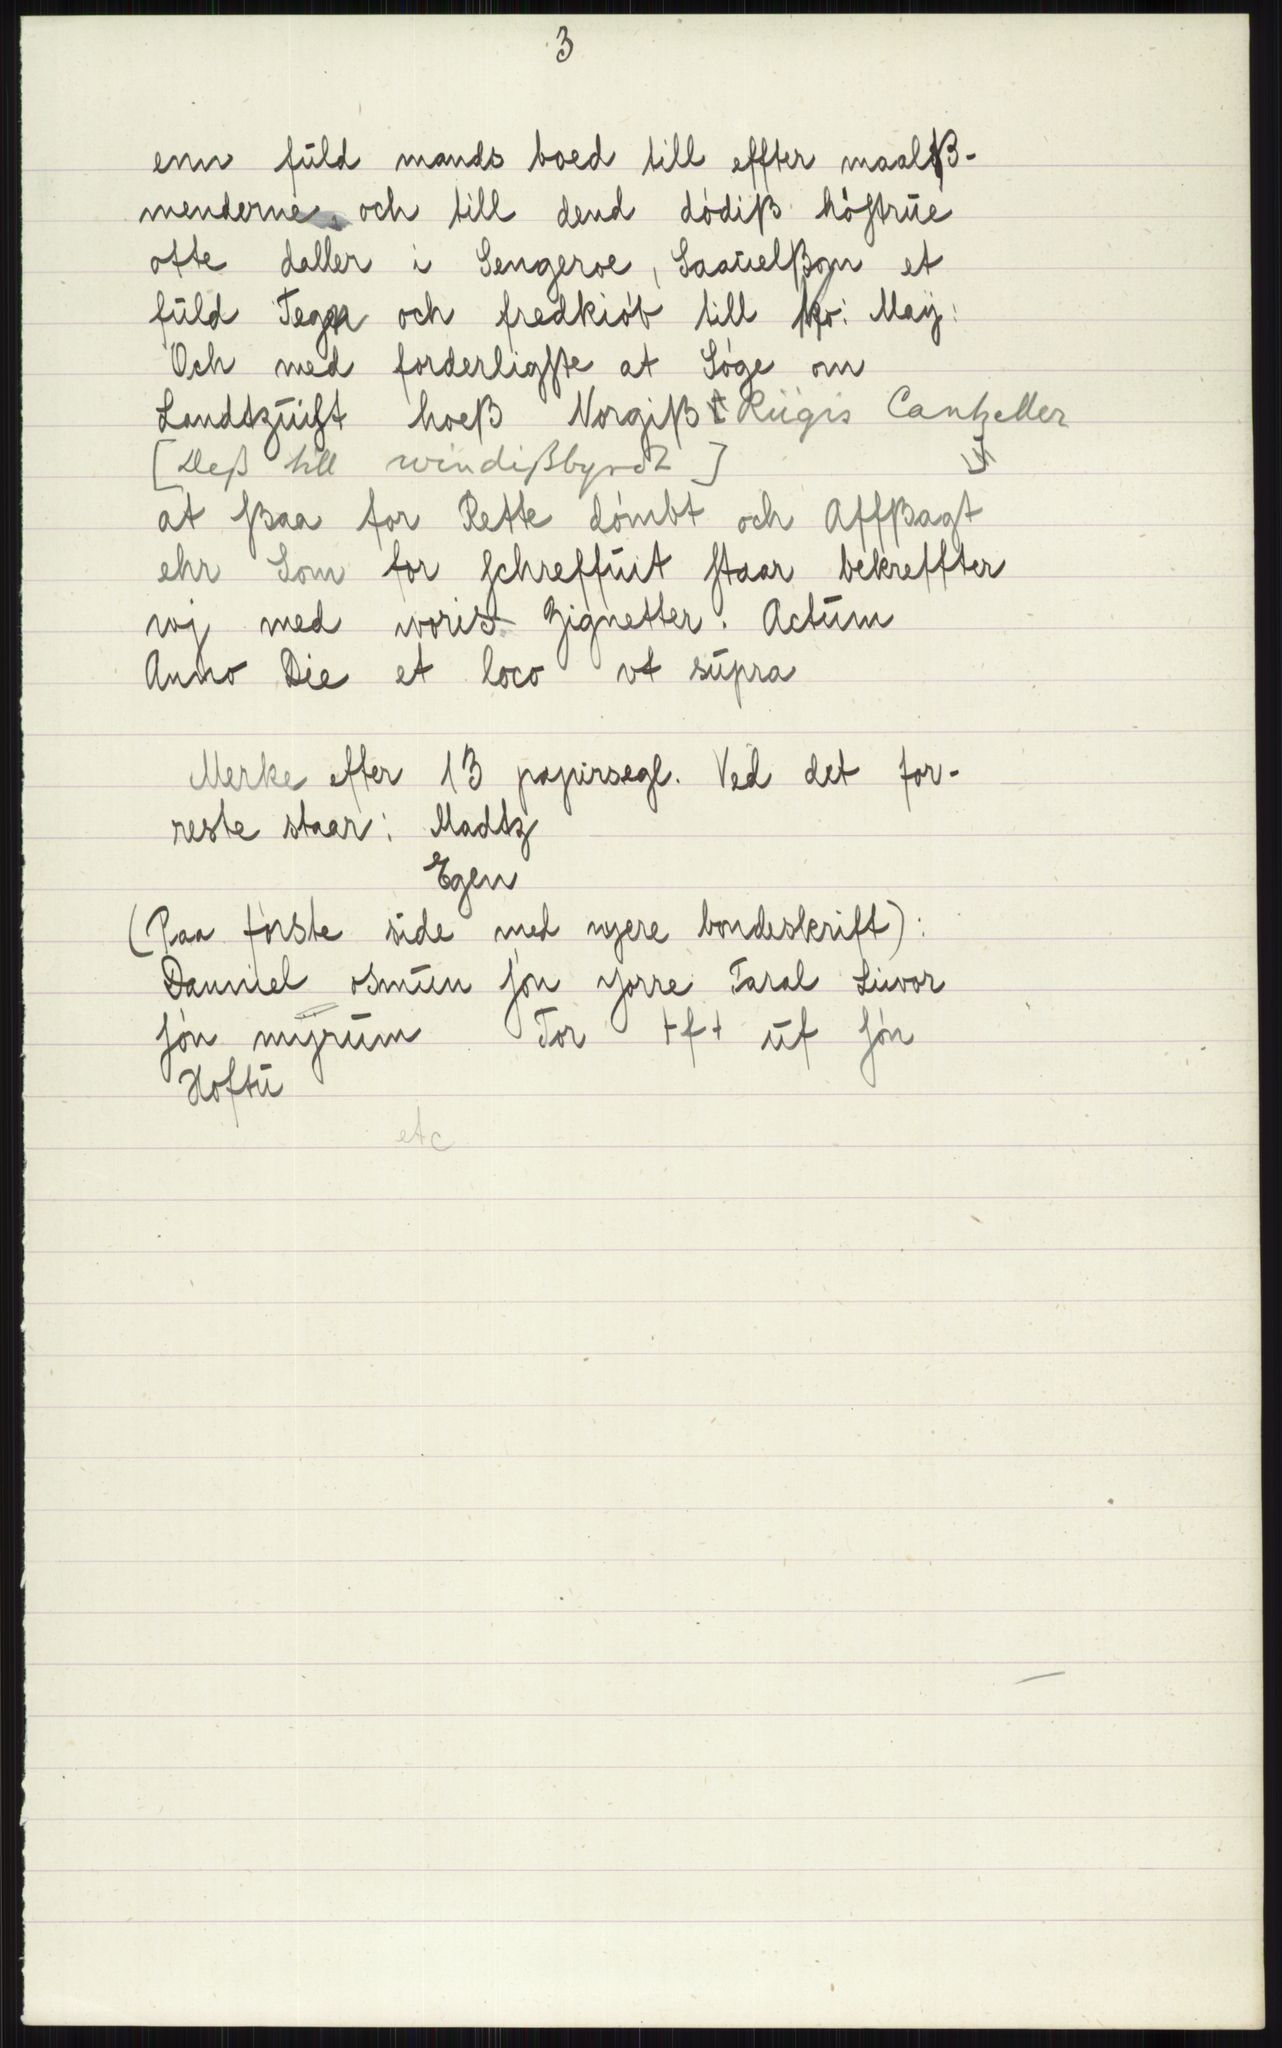 3
enn fŭld mands boed till effter maalß-
menderne och till dend dódiß hóstrŭe
otte daller i Sengeroe, Saaŭelßøn et
fŭld Tegn och fredkiób till ko: Maÿ:
Och med forderligste at Sóge om
Landtzŭist hoeß Norgiß Rŭgis Cantzeller
[Deß till windißbyrdt]
at ßaa for Rette dómbt och Affßagt
ehr Som for schreffŭit staar bekreffter
wj med woris Zignetter. Actŭm
Anno Die et loco vt sŭpra
Merke efter 13 papirsegl. Ved det for-
reste staar: Madtz
Egen
(Paa første side med nyere bondeskrift):
Danniel osmŭn són yorre Taral Liivor
són mÿrŭm Tor tft ŭf són
Hoftŭ
etc